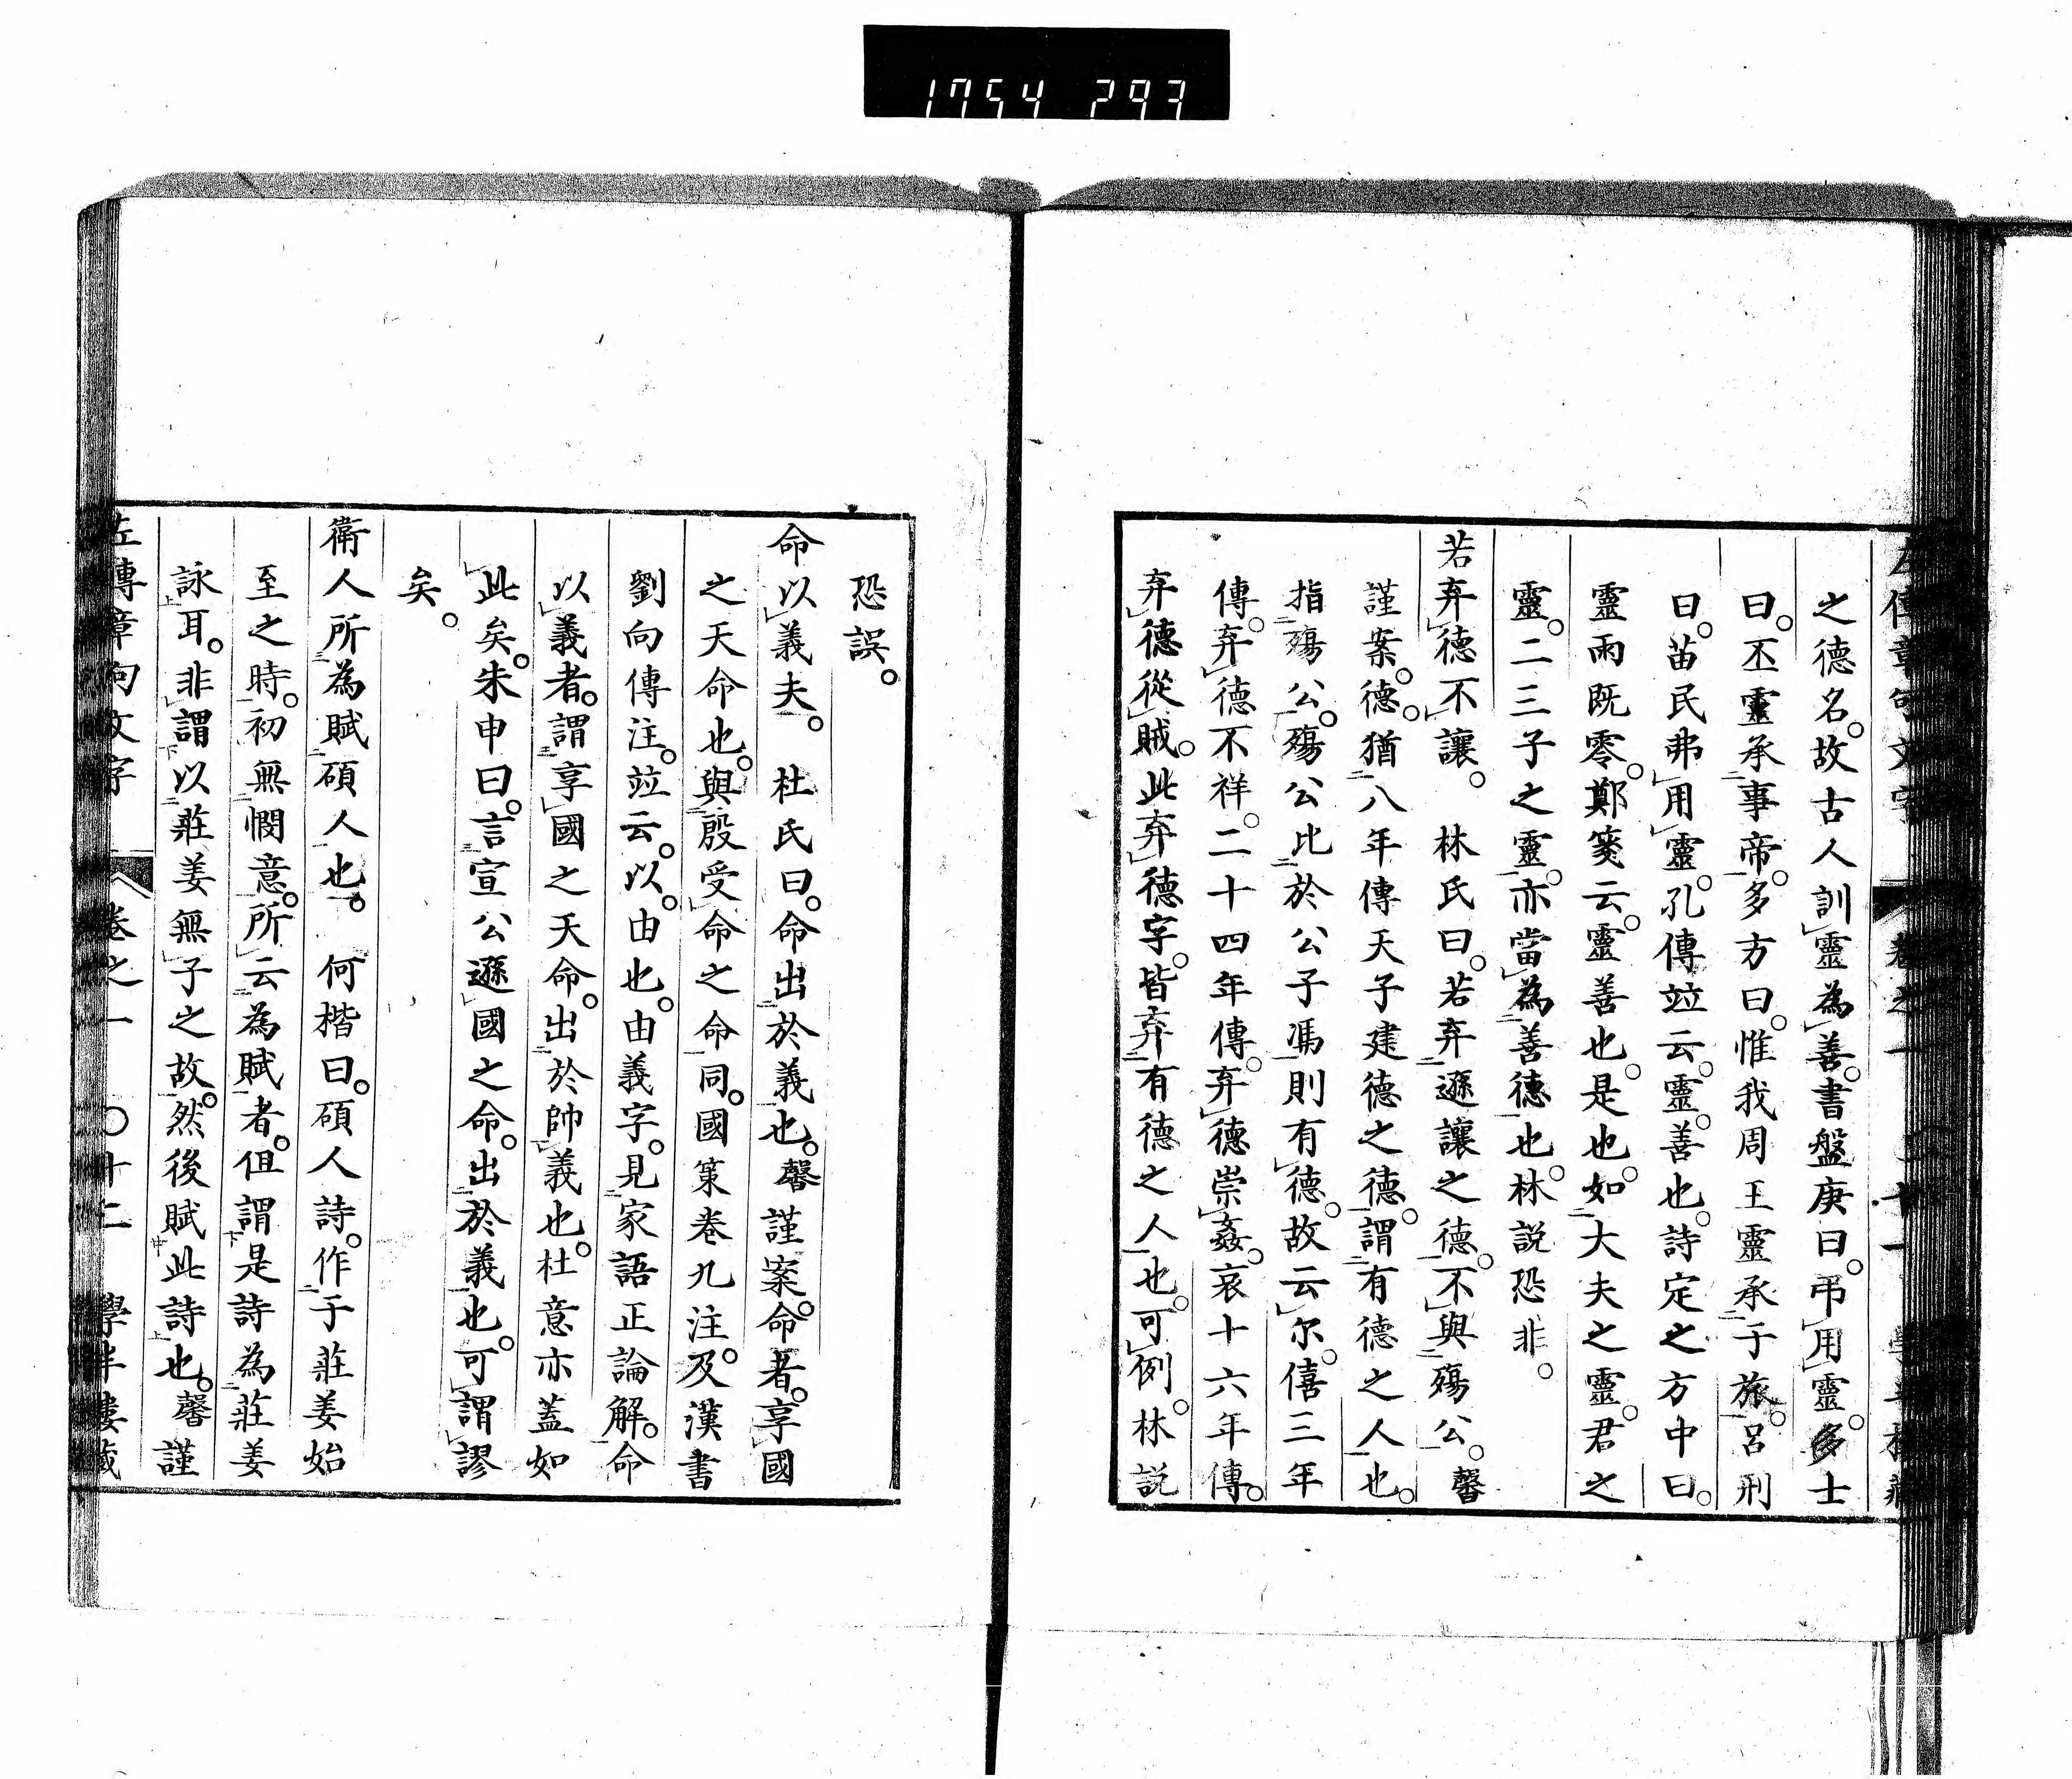 1754 293
之德名。故古人訓靈為善。書盤庚曰。弔用靈。多士
曰。丕靈承事帝。多方曰。惟我周王靈承于旅。呂刑
曰。苗民弗用靈。孔傳竝云。靈。善也。詩定之方中曰。
靈雨既零。鄭箋云。靈善也。是也。如大夫之靈。君之
靈。二三子之靈。亦當為善德也。林説恐非。
若弃德不讓。 林氏曰。若弃遜讓之德。不與殤公。馨
謹案。德。猶八年傳天子建德之德。謂有德之人也。
指殤公。殤公比於公子馮則有德。故云尔。僖三年
傳。弃德不祥。二十四年傳。弃德崇姦。哀十六年傳。
弃德從賊。此弃德字。皆弃有德之人也。可例。林説
恐誤。
命以義夫。 杜氏曰。命出於義也。馨謹案。命者。享國
之天命也。與殷受命之命同。國策卷九注。及漢書
劉向傳注。竝云。以。由也。由義字。見家語正論解。命
以義者。謂享國之天命。出於帥義也。杜意亦蓋如
此矣。朱申曰。言宣公遜國之命。出於義也。可謂謬
矣。
衛人所為賦碩人也。 何楷曰。碩人詩。作于莊姜始
至之時。初無憫意。所云為賦者。但謂是詩為莊姜
詠耳。非謂以莊姜無子之故。然後賦此詩也。馨謹
左傳章句文字 卷之一 〇十二 學半樓藏